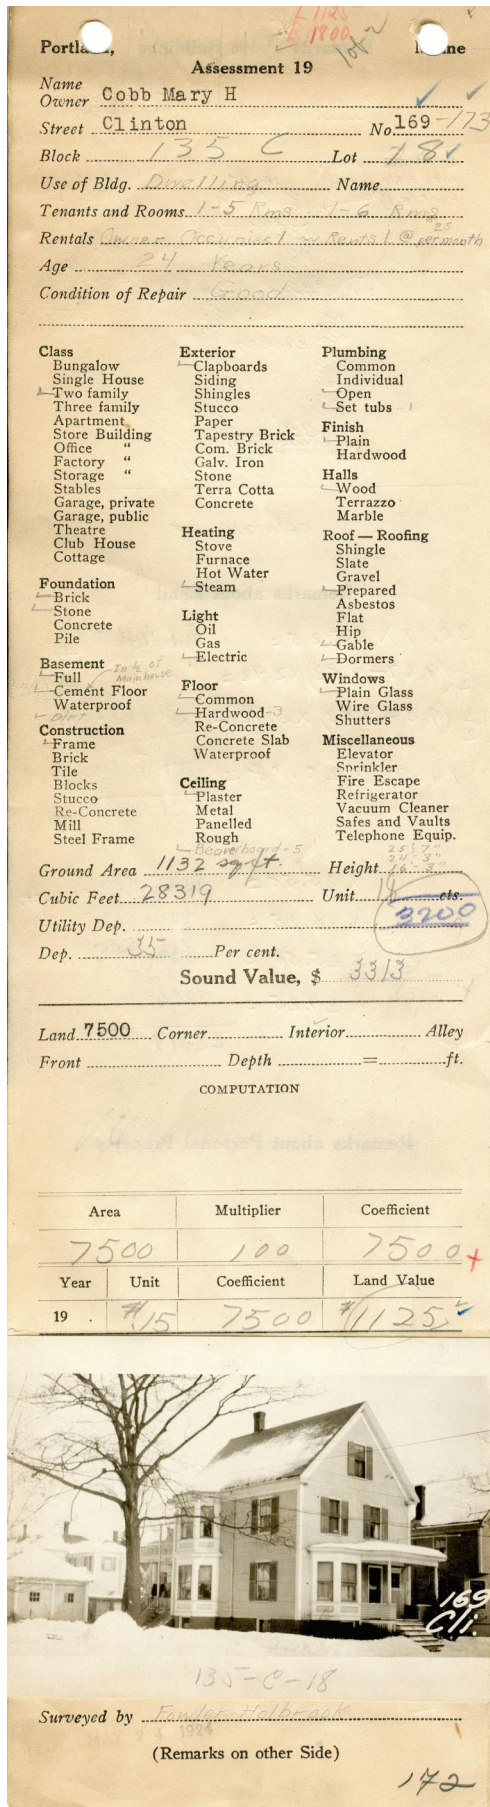 L 1125
B 1800
1 of 2
Portland, Maine
Assessment 19
Name
Owner Cobb Mary H
Street Clinton No 169-173
Block 135 C Lot 18
Use of Bldg. Dwelling Name
Tenants and Rooms 1-5 Rms 1-6 Rms
Rentals Owner Occupies 1 Rents 1 @ 25 per month
Age 24 Years
Condition of Repair Good
Class
Bungalow
Single House
Two family
Three family
Apartment
Store Building
Office "
Factory "
Storage "
Stables
Garage, private
Garage, public
Theatre
Club House
Cottage
Foundation
Brick
Stone
Concrete
Pile
Basement In ½ of Main house
Full
Cement Floor
Waterproof
Dirt
Construction
Frame
Brick
Tile
Blocks
Stucco
Re-Concrete
Mill
Steel Frame
Exterior
Clapboards
Siding
Shingles
Stucco
Paper
Tapestry Brick
Com. Brick
Galv. Iron
Stone
Terra Cotta
Concrete
Heating
Stove
Furnace
Hot Water
Steam
Light
Oil
Gas
Electric
Floor
Common
Hardwood-3
Re-Concrete
Concrete Slab
Waterproof
Ceiling
Plaster
Metal
Panelled
Rough
Beaverboard-5
Plumbing
Common
Individual
Open
Set tubs 1
Finish
Plain
Hardwood
Halls
Wood
Terrazzo
Marble
Roof — Roofing
Shingle
Slate
Gravel
Prepared
Asbestos
Flat
Hip
Gable
Dormers
Windows
Plain Glass
Wire Glass
Shutters
Miscellaneous
Elevator
Sprinkler
Fire Escape
Refrigerator
Vacuum Cleaner
Safes and Vaults
Telephone Equip.
Ground Area 1132 sq ft. Height 25'-7" 24'-3" 16'-3"
Cubic Feet 28319 Unit 18 cts.
3200
Utility Dep.
Dep. 35 Per cent.
Sound Value, $ 3313
Land 7500 Corner Interior Alley
Front Depth = ft.
COMPUTATION
Area Multiplier Coefficient
7500 100 7500
Year Unit Coefficient Land Value
19 . $15 7500 $1125
169
Cli.
135-C-18
Surveyed by Fowler Holbrook
1924
(Remarks on other Side)
172